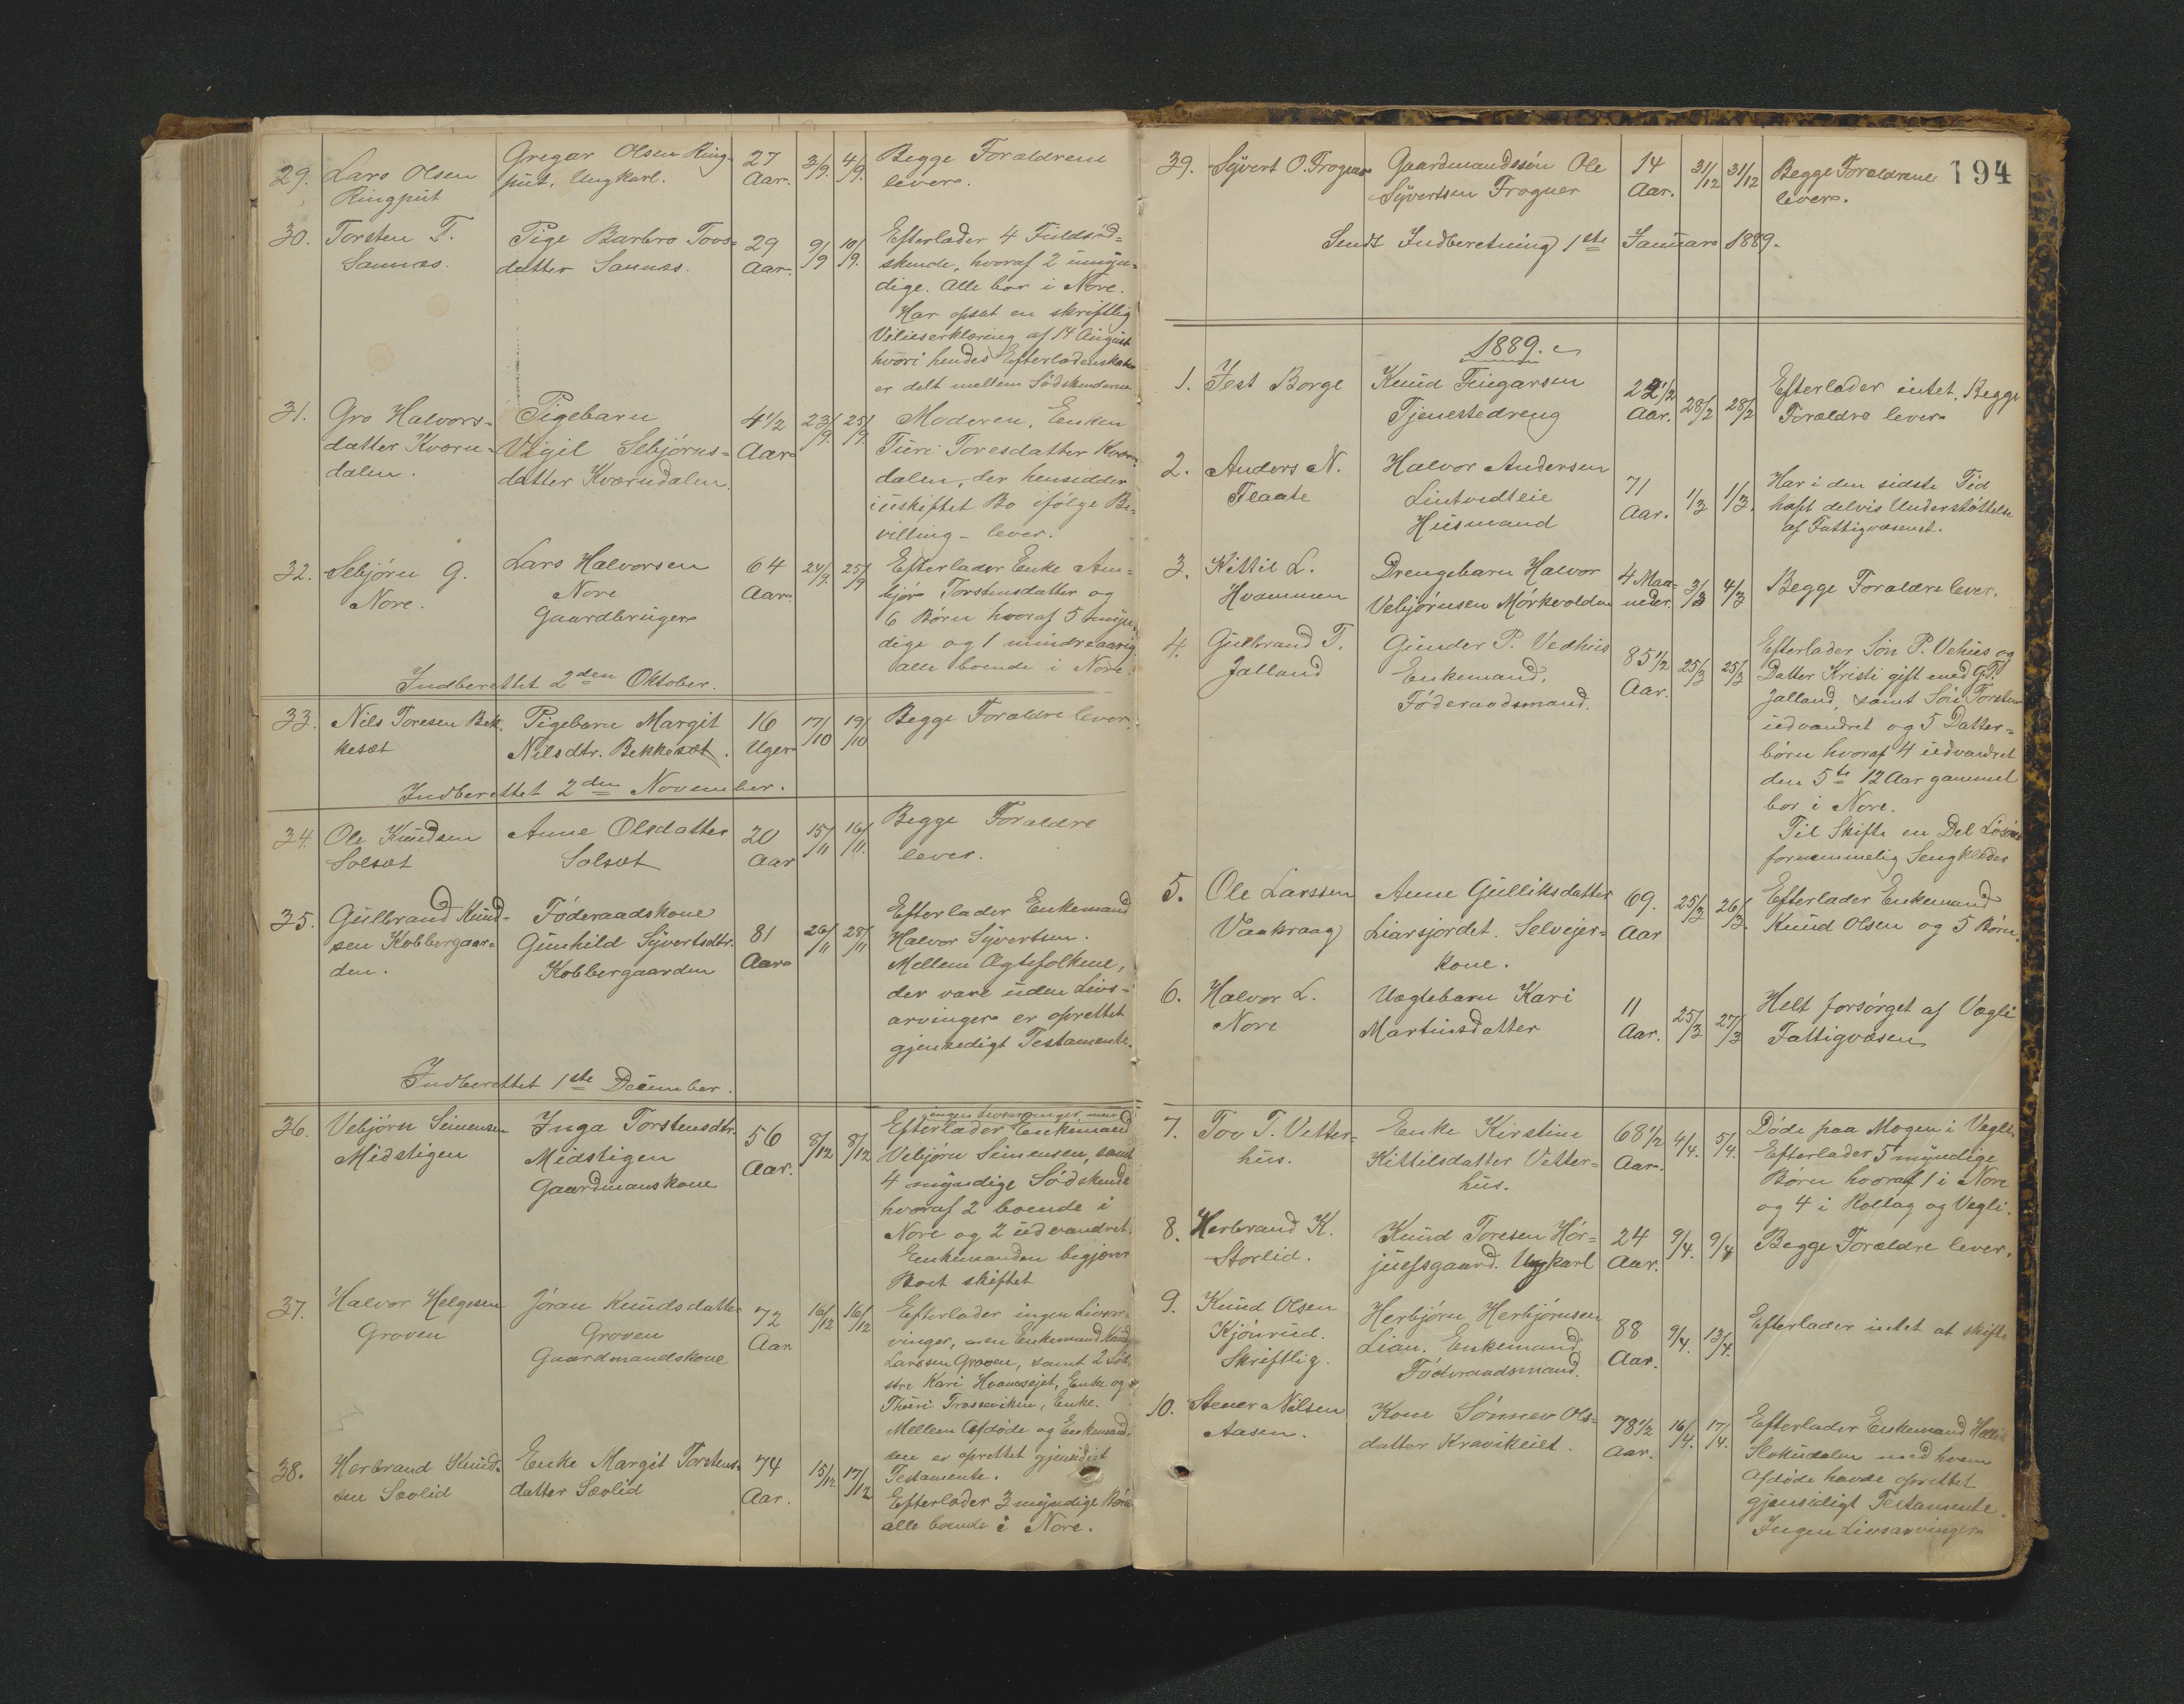 29. Lars Olsen Ringpüt
Gregar Olsen Ring=
püt, Ungkarl.
27 Aar. 3/9. 4/9.
Begge Forældrene
lever.
30. Torsten T.
Saunæs.
Pige Barbro Tovs=
datter Saunæs.
29 Aar. 9/9 10/9.
Efterlader 4 Füldsød=
skende, hvoraf 2 ümyn=
dige. Alle bor i Nore.
Har opsat en skriftlig
Vilieserklæring af 14 Aügüst
hvori hendes Efterladenskaber
er delt mellem Sødskenderne
31. Gro Halvors=
datter Kværn=
dalen.
Pigebarn
Vigil Sebjørns=
datter Kværndalen.
4 1/2 Aar 23/9. 25/9.
Moderen, Enken
Türi Toresdatter Kværn=
dalen, der hensidder
i üskiftet Bo ifølge Be=
villing - lever.
32. Sebjørn G.
Nore.
Lars Halvorsen
Nore
Gaardbrüger
64 Aar. 24/9 25/9
Efterlader Enke Am=
bjør Torstensdatter og
6 Børn hvoraf 5 myn=
dige og 1 mindreaarig
alle boende i Nore.
Indberettet 2den Oktober.
33. Nils Toresen Bek=
kesæt
Pigebarn Margit
Nilsdtr. Bekkesæt.
16 Uger 17/10 19/10
Begge Forældre lever.
Indberettet 2den November.
34. Ole Knüdsen
Solsæt
Anne Olsdatter
Solsæt
20 Aar 15/11 16/11.
Begge Forældre
lever.
35. Gülbrand Knüd=
sen Kobbergaar=
den.
Føderaadskone
Günhild Syvertsdtr.
Kobbergaarden
81 Aar 26/11 28/11
Efterlader Enkemand
Halvor Syvertsen.
Mellem Ægtefolkene,
der vare üden Livs=
arvinger er oprettet
gjensidigt Testamente.
Indberettet 1ste December.
36. Vebjørn Simensen
Midstigen
Inga Torstensdtr.
Midstigen
Gaardmanskone
56 Aar. 8/12 8/12
ingen Livsarvinger, men
Efterlader Enkemand
Vebjørn Simensen, samt
4 myndige Sødskende
hvoraf 2 boende i
Nore og 2 üdvandret.
Enkemanden begjærer
Boet skiftet
37. Halvor Helgesen
Groven
Jøran Knüdsdatter
Groven
Gaardmandskone
72 Aar 16/12 16/12
Efterlader ingen Livsar=
vinger, men Enkemand Knüd
Larssen Groven, samt 2 Søs=
stre Kari Hvamsejet, Enke og
Thüri Trosseviken, Enke.
Mellem Afdøde og Enkeman=
den er oprettet gjensidigt
Testamente.
38. Herbrand Knüd=
sen Sævlid
Enke Margit Torstens=
datter Sævlid
74 Aar. 15/12 17/12
Efterlader 3 myndige Børn
alle boende i Nore.
194
39. Syvert O. Frogner
Gaardmandssøn Ole
Syvertsen Frogner
14 Aar. 31/12 31/12
Begge Forældrene
lever.
Sendt Indberetning 1ste Januar 1889.
1889.
1. Jest Borge
Knüd Fingarsen
Tjenestedreng
22 1/2 Aar. 28/2 28/2
Efterlader intet. Begge
Forældre lever
2. Anders N.
Flaate
Halvor Andersen
Lintvedteie
Hüsmand
71 Aar. 1/3 1/3.
Har i den sidste Tid
havt delvis Understøttelse
af Fattigvæsenet.
3. Kittil L.
Hvammen
Drengebarn Halvor
Vebjørnsen Mørkvolden
4 Maa=
neder. 3/3 4/3
Begge Forældre lever.
4. Gülbrand T.
Jalland
Günder P. Vedhüs
Enkemand,
Føderaadsmand.
85 1/2 Aar. 25/3 25/3
Efterlader Søn P. Vehüs og
Datter Kristi gift med G.T.
Jalland, samt Søn Torsten
üdvandret og 5 Datter=
børn hvoraf 4 üdvandret
den 5te 12 Aar gammel
bor i Nore.
Til Skifte en Del Løsøre
fornemmelig Sengklæder
5. Ole Larssen
Vaakraag
Anne Gülliksdatter
Liarsjordet. Selvejer=
kone.
69. Aar 25/3 26/3.
Efterlader Enkemand
Knüd Olsen og 5 Børn.
6. Halvor L.
Nore
Uægtebarn Kari
Martinsdatter
11 Aar. 25/3 27/3
Helt forsørget af Vægli
Fattigvæsen
7. Tov T. Vetter=
hüs.
Enke Kirstine
Kittilsdatter Vetter=
hüs.
68 1/2 Aar. 4/4. 5/4.
Døde paa Mogen i Vegli.
Efterlader 5 myndige
Børn hvoraf 1 i Nore
og 4 i Rollag og Vegli.
8. Herbrand K.
Storlid.
Knüd Toresen Hør=
jülfsgaard. Ungkarl
24 Aar. 9/4. 9/4
Begge Forældre lever.
9. Knüd Olsen
Kjønrüd.
Skriftlig.
Herbjørn Herbjørnsen
Lian. Enkemand
Føderaadsmand.
88 Aar. 9/4. 13/4.
Efterlader intet at skifte
10. Stener Nilsen
Aasen.
Kone Sønnev Ols=
datter Kravikeiet.
78 1/2 Aar. 16/4. 17/4.
Efterlader Enkemand
med hvem
Afdøde havde oprettet
gjensidigt Testamente.
Ingen Livsarvinger